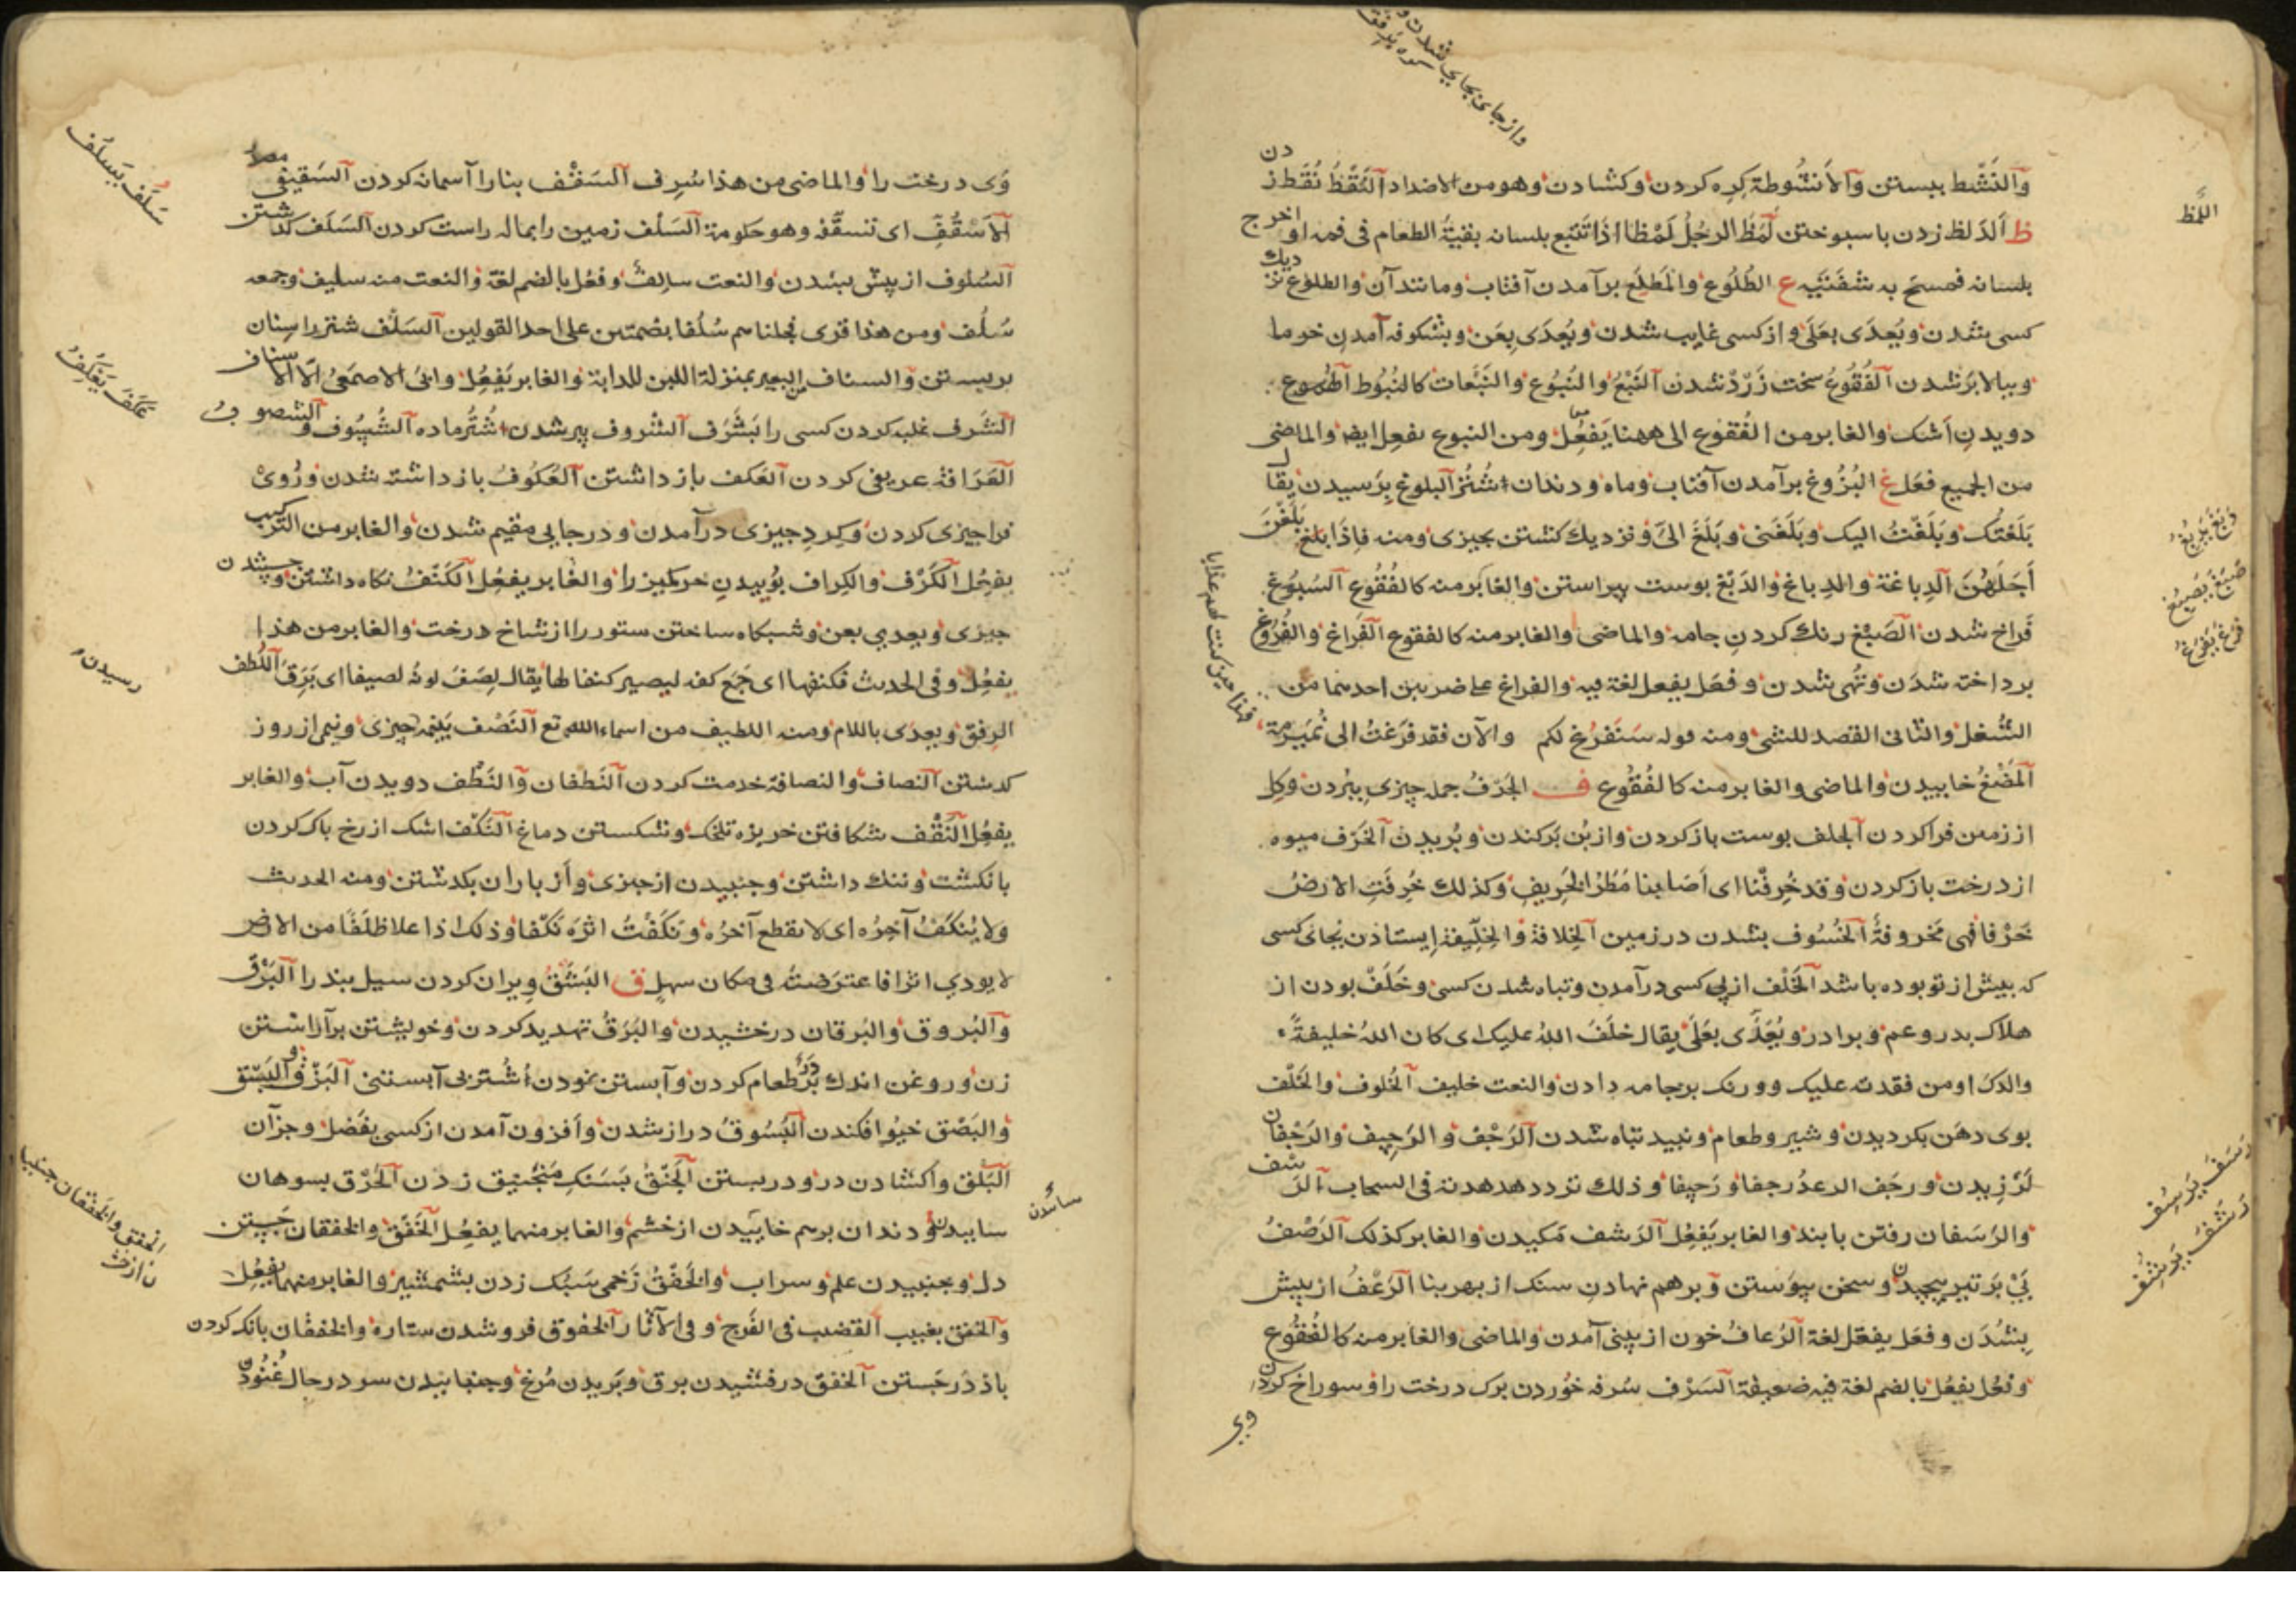 وَالنَّشْط ببستن وَالأنشُوطة كِره كردن وكشادن وهو من الاضداد النَقْطُ نُقَط زدن
ظ اَلدَلظ زدن با سبوختن لَمَظَ الرجُلُ لَمْظا اذا تَتَبع بلسانه بقيةُ الطعام فى فمه او اخرج
بلسانه فمسح به شفتَيه ع الطُلُوع والمَطلِع برآمدن آفتاب ومانند آن والطلوع نزديك
كسى بشدن ويُعدَى بعَلَى واز كسى غايب شدن ويُعدَى بعَن وبشكوفه آمدن خرما
وببالا برشدن الفُقُوعُ سخت زَرْد شدن النَبْعُ والنُبُوع والنَبَعان كالنُبُوط الهُموع
دويدنِ اَشك والغابر من الفُقوع الى ههنا يَفعُل ومن النبوع يفعِل ايضا والماضى
من الجميع فعَل غ البُزُوغ برآمدن آفتاب وماه ودندان اشتُر البلوغ بِرَسيدن يقال
بَلَغتك وبَلَغْتُ اليك وبَلَغَنى وبَلَغَ الىَّ ونزديك كشتن بجيزى ومنه فاِذَا بَلَغْنَ
اَجَلَهُنَ الدِباغة والدِباغ والدَبْغ بوست پيراستن والغابر منه كالفُقُوع السُبُوغ
فَراخ شدن الصَبْغ رنك كردنِ جامه والماضى والغابر منه كالفقوع الفَراغ والفُرُوغ
برداخته شدَن وتُهى شدن وفعَل يفعل لغة فيه والفراغ على ضربين احدهما من
الشُغل والثانى القصد للشى ومنه قوله سَنَفرُغ لكم والآن فقد فَرَغتُ الى نُمَير
اَلمَضْغُ خاييدن والماضى والغابر منه كالفُقُوع ف الجَرْفُ جمله چيزى ببُردن وكِل
از زمين فرا كردن الجلف بوست باز كردن واز بُن بَركندن وبُريدن الخَرْف ميوه
از درخت باز كردن وقد خُرِفْنا اى اَصَابنا مَطَرُ الخَرِيفِ وكذلك خُرِفَتِ الارضُ
خَرْفا فهى مَخروفةُ الخُسُوف بشدن در زمين الخِلافة والخِلِّيفة اِيستادن بجاى كسى
كه بيش از تو بوده باشد الخَلْف از پى كسى درآمدن وتباه شدن كسى وخَلَفَ بودن از
هلاك بدر وعم وبرادر ويُعَدَّى بعَلَى يقال خلَفَ اللهُ عليك اى كان اللهُ خليفةَ
والدك او من فقدته عليك وورنك برجامه دادن والنعت خليف الخُلوف والخَلْف
بوى دهَن بكرديدن وشير وطعام ونبيد تباه شدن الرَجْف والرَجِيف والرَجَفان
لَرْزِيدن ورجَف الرعدُ رجفا ورَجيفا وذلك تردد هدهدته فى السحاب الرَسْف
والرَسَفان رفتن بابند والغابر يَفعِل الرَشف مَكيدن والغابر كذلك الرَصْفُ
پَىْ بَر تير پيچيدن وسخن پيوَستن وبرهم نهادنِ سنك از بهر بنا الرَعْفُ از پيش
بِشُدَن وفعَل يفعَل لغة الرُعافُ خون از بينى آمدن والماضى والغابر منه كالفُقُوع
وفعُل يفعُل بالضم لغة فيه ضعيفة السَرْف سُرفه خوُردن برك درخت را وسوراخ كردن
اللَّمْظ
دَبَغ يَدبُغُ
صَبَغَ يَصبُغ
فَرَغ يَفرُغُ
رَسَفَ يَرسِف
رَشَفَ يَرشِف
وى
وَى درخت را والماضى من هذا سُرِف السَقْف بنا را آسمانه كردن السَقيفى مصدر
الاُسْقُفِّ اى تسقَّف وهو حكومة السَلْف زمين را بماله راست كردن السَلَف كذشتن
السُلوف از پيش بشدن والنعت سالِفُ وفعُل بالضم لغة والنعت منه سليف وجمعه
سُلُف ومن هذا قرى فجلناهم سُلُفا بضمتين على احد القولين السَنْف شتر را سِنان
بربستن والسناف للبعير بمنزلة اللبن للدابة والغابر يَفعِل وابى الاصمَعىُ الّا الاسناف
الشَرف غلبه كردن كسى را بَشَرَف الشُروف پير شدن اشتُر ماده الشُسُوف والشصوف
العَرَافة عريفى كردن العَكف باز داشتن العُكُوفُ باز داشته شدن ورُوىْ
فرا جيزى كردن وكِردِ جيزى درآمدن ودر جايى مقيم شدن والغابر من التركيب
يفعِل الكَرْف والكِراف بوُييدنِ خر كميز را والغابر يفعِل الكَنْفُ نكاه داشتن
جيزى ويعدى بعن وشبكاه ساختن ستور را از شاخ درخت والغابر من هذا
يفعِل وفى الحديث فكنفها اى جَمَع كفه ليصير كنفا لها يقال لصَفَ لونُه لصيفا اى بَرَقَ اللُطف
الرِفق ويعدَى باللام ومنه اللطيف من اسماء الله تع النَصْف بنيمه جيزى ونيمى از روز
كدشتن النصاف والنصافة خدمت كردن النَطفان والنَطْف دويدن آب والغابر
يفعُل النَقْف شكافتن خربزه تلخك وشكستن دماغ النَكْف اشك از رخ باك كردن
بانكشت وننك داشتن وجنبيدن از جيزى واز باران بكدشتن ومنه الحديث
ولا يُنكَفُ آخِرُه اى لا يقطع آخرُه ونكَفْتُ اثرَه نَكْفا وذلك اذا علا ظلَفًا من الارض
لا يودى اثرا فاعترَضتُه فى مكان سهل ق البَثْقُ ويران كردن سيل بند را البَرْق
والبُروق والبَرقان درخشيدن والبَرْقُ تهديد كردن وخويشتن برآراستن
زن وروغن اندك بَر طعام كردن وآبستن نمودن اُشتُر بى آبستنى البَزْق والبَسْق
والبَصْق خيُو افكندن البُسُوقُ دراز شدن واَفزون آمدن از كسى بفَضل وجزآن
البَلق واكشادن در ودر بستن الجَنْقُ بَسَنك مَنجَنيق زدن الحَرْق بسوهان
ساييدن ودندان برهم خاييدن از خشم والغابر منهما يفعِل الخَفْق والخفقان جَستن
دل وبجنبيدن علم وسراب والخَفْقُ زَخمى سَبُك زدن بشمشير والغابر منهما يفعِل
والخفق بغيب القضيب فى الفَرج وفى الآثار الخفوق فروشدن ستاره والخفقان بانك كردن
باد دَر جَستن الخفق درفشيدن برق وبَريدن مُرغ وجنبانيدن سر در حال غُنُودن
سَلَف يَسلُف
عَكَفَ يَعْكِفُ
رسيدن
سائيدن